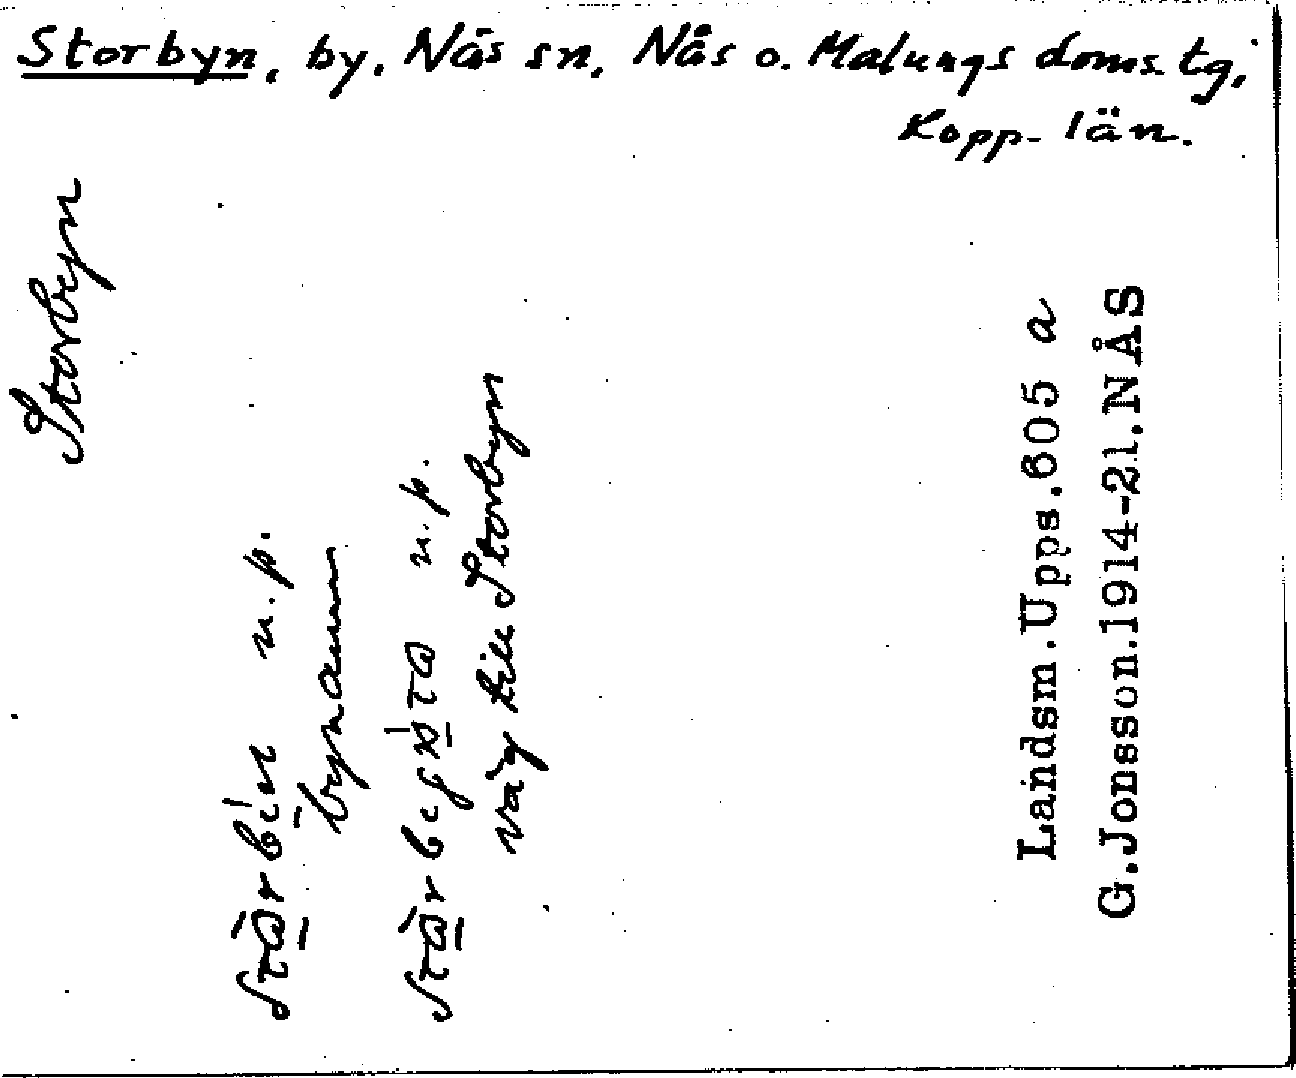 Storbyn, by, Nås sn, Nås o. Malungs doms. tg,
Kopp. län.
Storbyn
n.p.
bynamn
n.p.
väg till Storbyn
Landsm. Upps. 605 a
G. Jonsson. 1914-21. NÅS